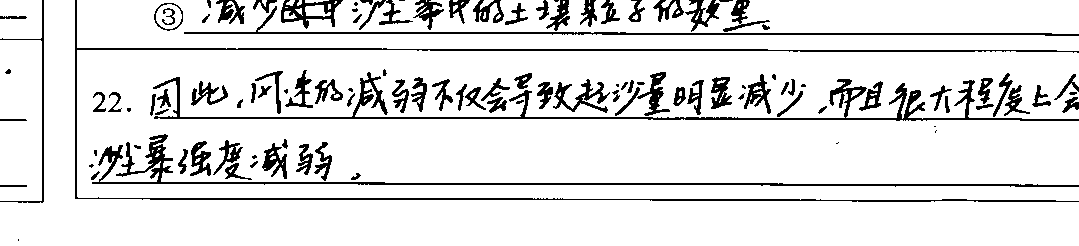 ③ 减少由中沙尘暴中的土壤粒子的数量。
22. 因此,风速的减弱不仅会导致起沙量明显减少,而且很大程度上会
沙尘暴强度减弱。